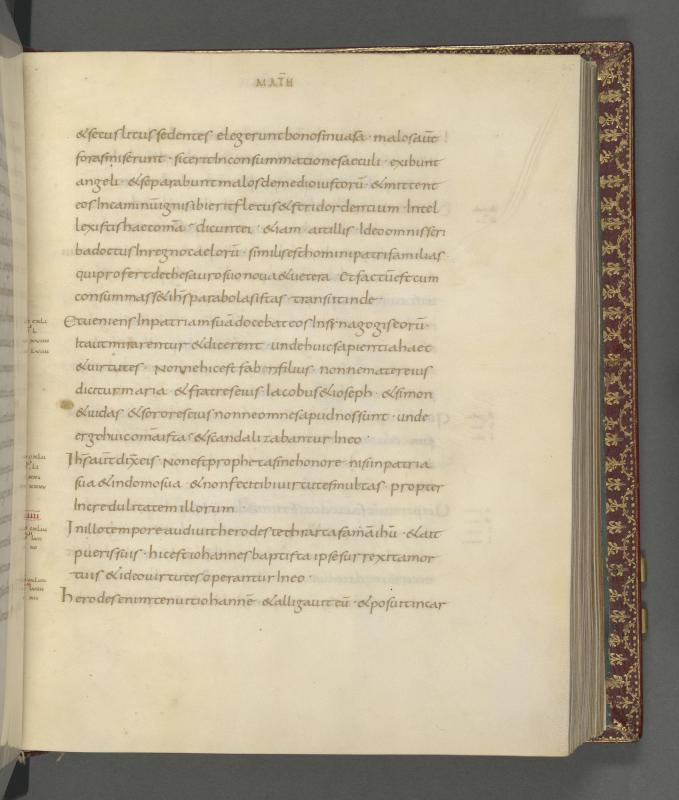 MATH
&secus litus sedentes elegerunt bonos in uasa · malos aut̄
foras miserunt · sic erit In consummatione saeculi · exibunt
angeli · &separabunt malos de medio iustorū · &mittent
eos In caminū ignis ibi erit fletus &stridor dentium · Intel
lexistis haec omnia dicunt ei · &iam ait illis Ideo omnis scri
ba doctus In regno caelorū · similis est homini patri familias ·
qui profert de thesauro suo noua &uetera · Et factū est cum
consummass& ih̄s parabolas istas · transiit inde ·
Et ueniens In patriam suā docebat eos In synagogis eorū ·
Ita ut mirarentur &dicerent · unde huic sapientia haec
&uirtutes · Nonne hic est fabri filius · nonne mater eius
dicitur maria · &fratres eius · Iacobus &ioseph · &simon
&iudas · &sorores eius nonne omnes apud nos sunt · unde
ergo huic omīa ista · &scandalizabantur In eo ·
Ih̄s aut̄ dix̄ eis Non est propheta sine honore · nisi in patria
sua &in domo sua · &non fecit ibi uirtutes multas · propter
Incredulitatem illorum
In illo tempore audiuit herodes tetrarcha famā ih̄u · &ait
pueris suis · hic est iohannes baptista ipse surrexit a mor
tuis &ideo uirtutes operantur In eo ·
herodes enim tenuit iohannē · &alligauit eū · &posuit in car